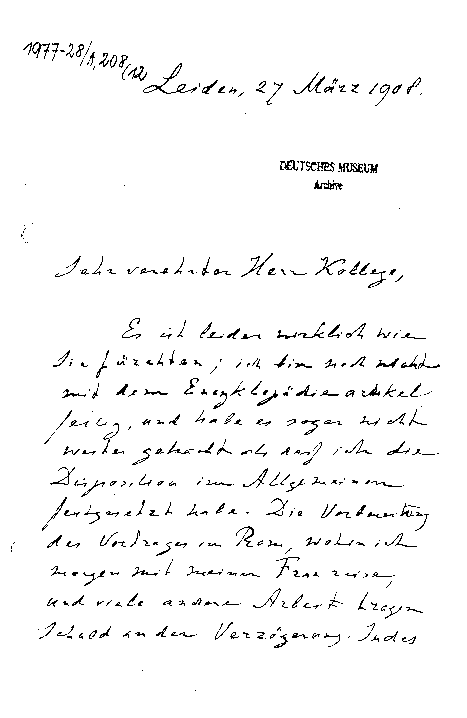 1977-28/A,208/12
Leiden, 27 März 1908.
DEUTSCHES MUSEUM
Archive
Sehr verehrter Herr Kollege,
Es ist leider wirklich wie
Sie fürchten; ich bin noch nicht
mit dem Encyklopädieartikel
fertig, und habe es sogar nicht
weiter gebracht als dass ich die
Disposition im Allgemeinen
festgesetzt habe. Die Vorbereitung
des Vortrages in Rom, wohin ich
morgen mit meiner Frau reise,
und viele andere Arbeit tragen
Schuld an der Verzögerung. Indes